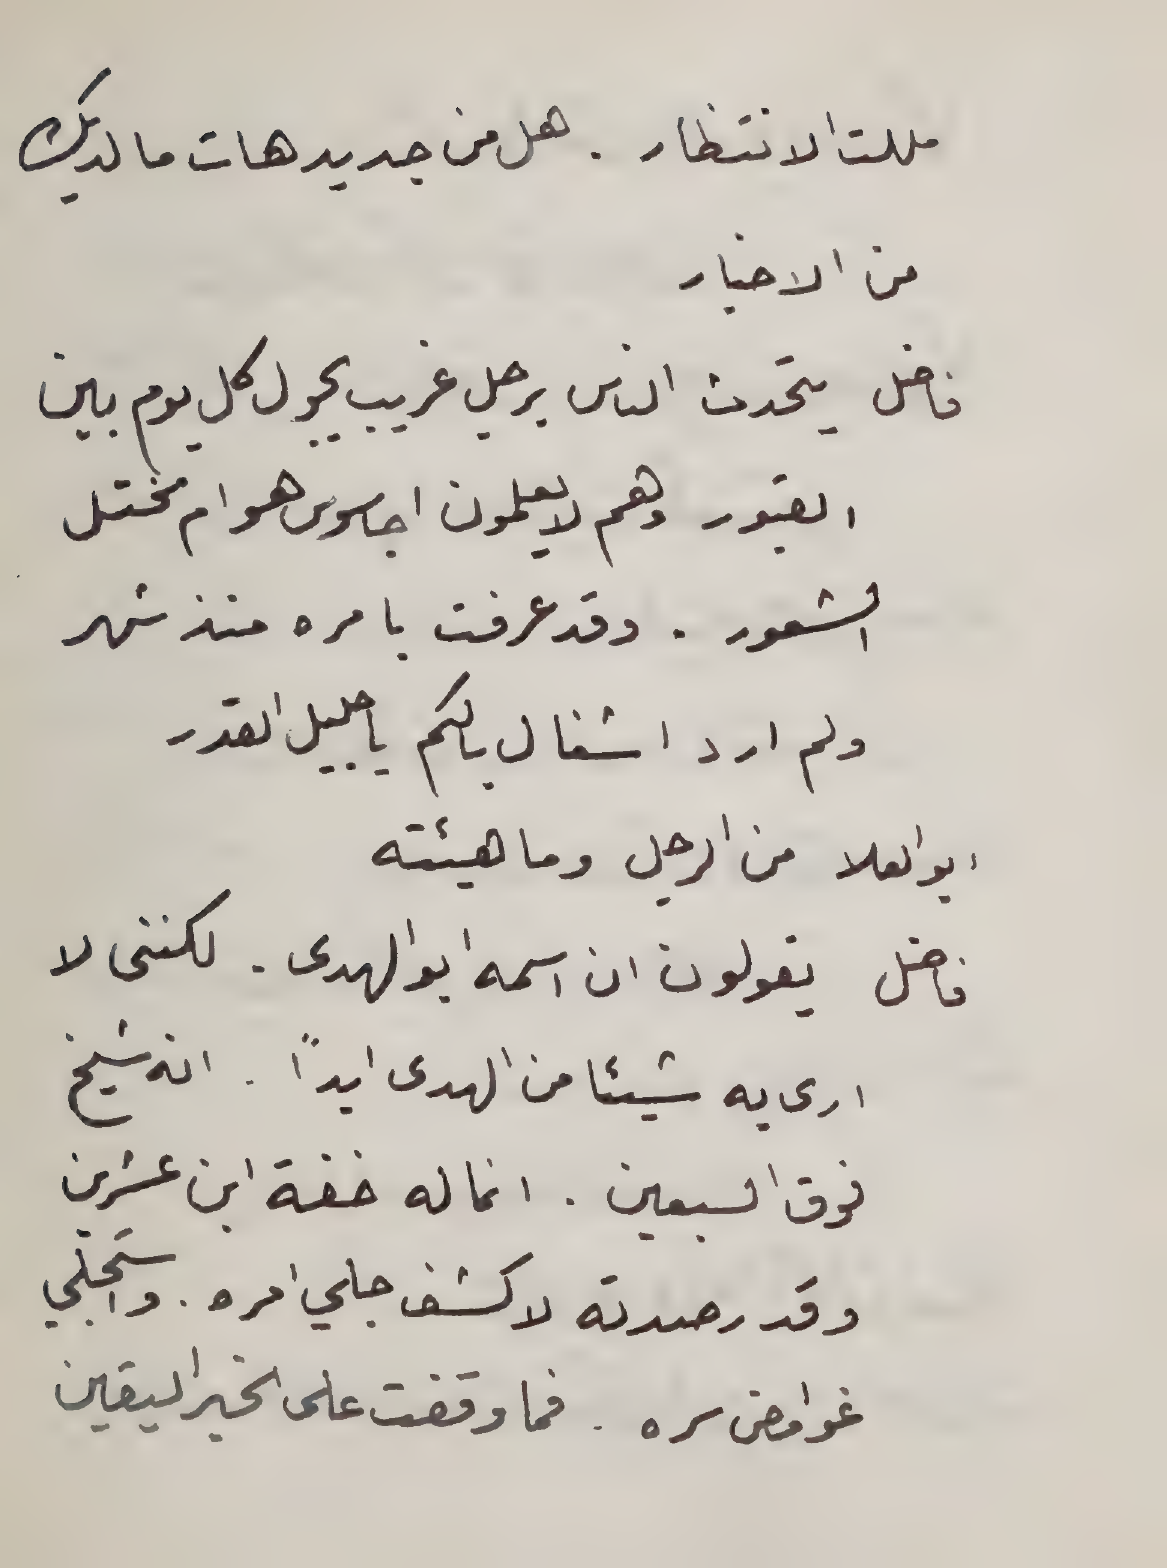 مللت الانتظار . هل من جديد هات ما لديك
من الاخبار
فاضل يتحدث الناس برجل غريب يجول كل يوم بين
القبور وهم لا يعلمون اجاسوس هو ام مختل
الشعور . وقد عرفت بامره منذ شهر
ولم ارد اشغال بالكم يا جليل القدر
ابو العلا من الرجل وما هيئته
فاضل يقولون ان اسمه ابو الهدى . لكننى لا
ارى به شيئا من الهدى ابداً . انه شيخ
فوق السبعين . انما له خفة ابن عشرين
وقد رصدته لاكشف جلي امره . واستجلي
غوامض سره . فما وقفت على الخبر اليقين